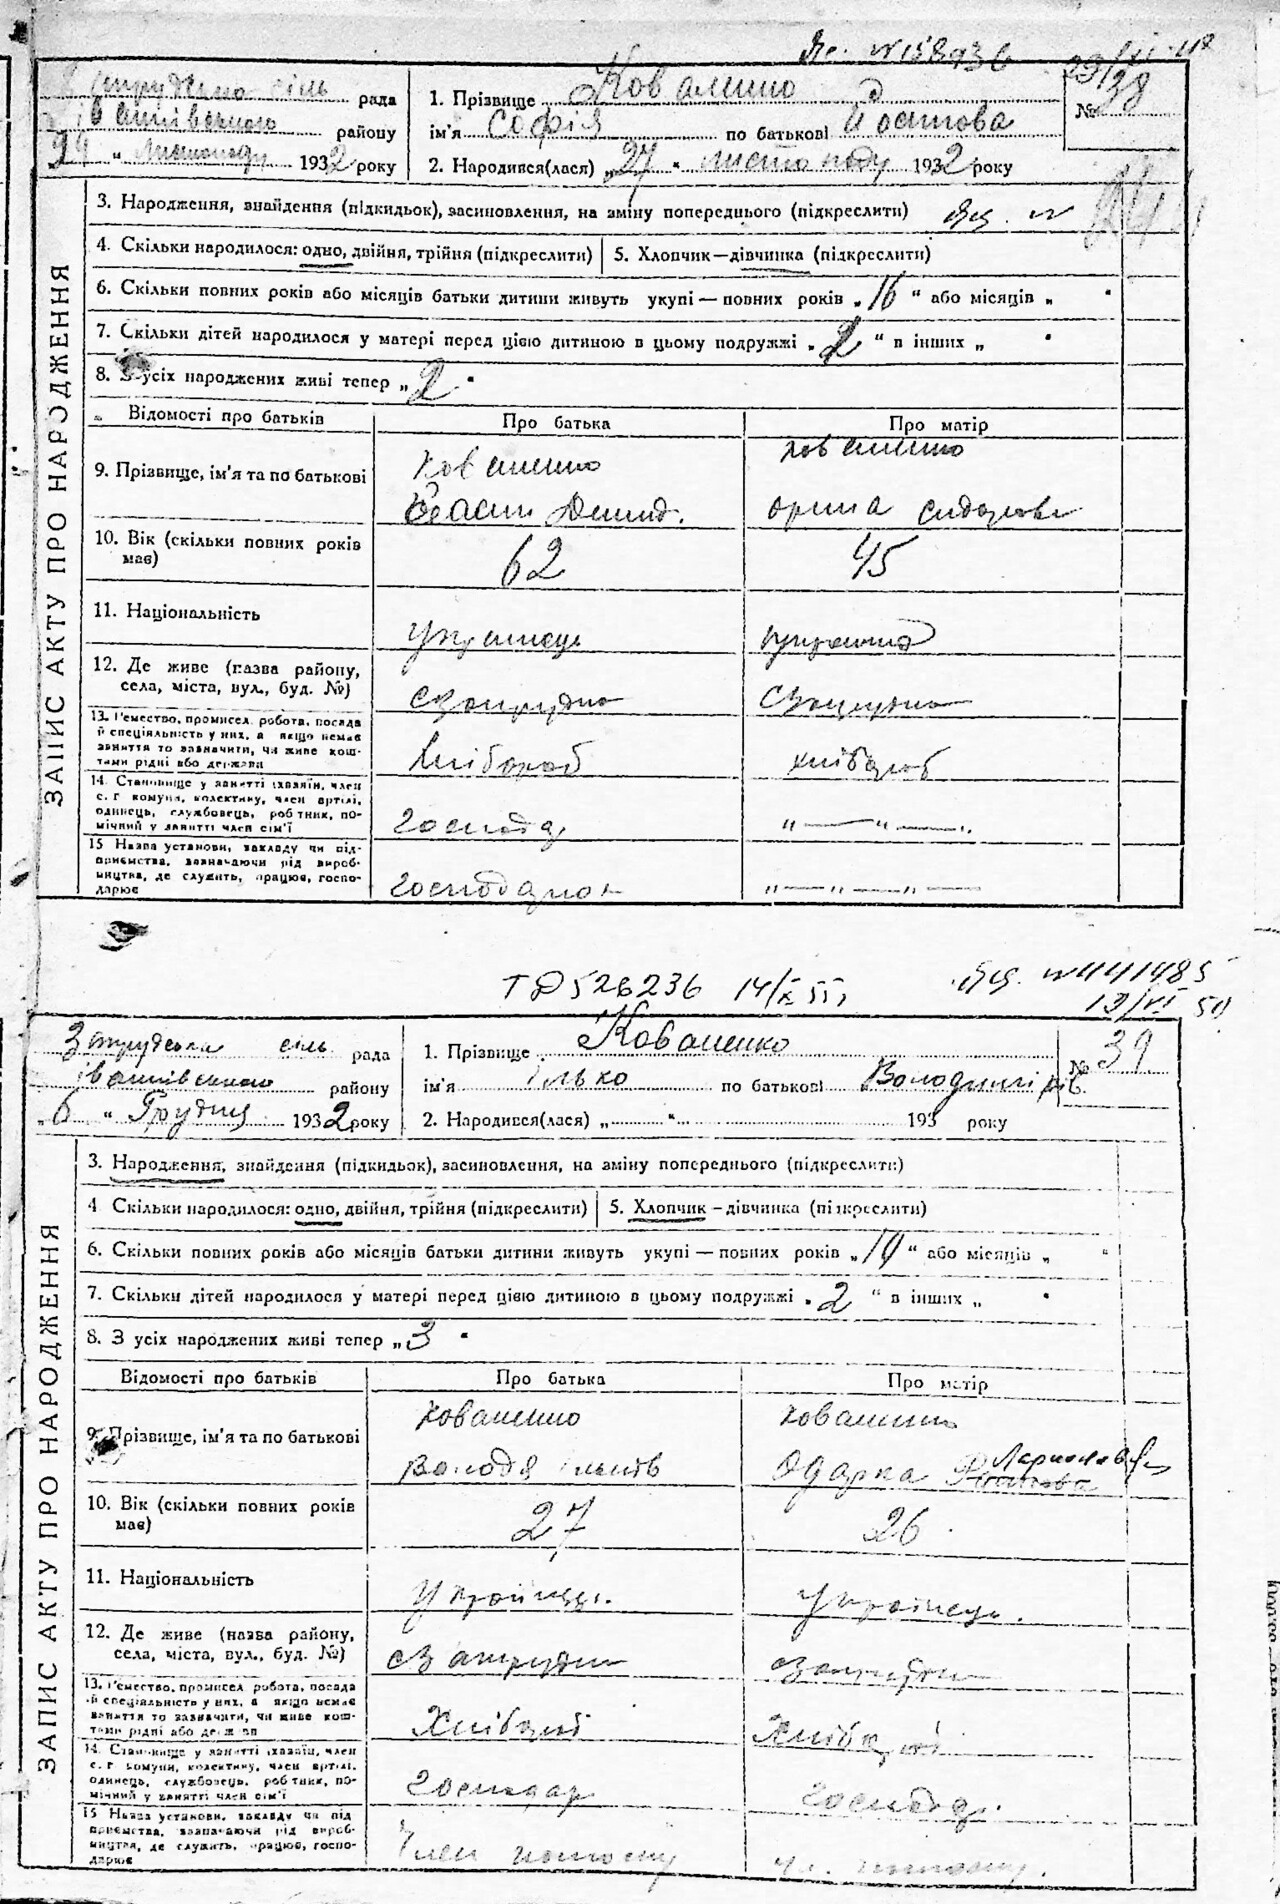 № 158936
Коваленко
38
рада
1. Прізвище
№
району
ім'я Софія по батькові Йосипова
" листопаду 1932 року
2. Народився(лася) „27 " листопаду 1932 року
3. Народження, знайдення (підкидьок), засиновлення, на зміну попереднього (підкреслити)
4. Скільки народилося: одно, двійня, трійня (підкреслити)
5. Хлопчик—дівчинка (підкреслити)
6. Скільки повних років або місяців батьки дитини живуть укупі — повних років „16 " або місяців „ "
7. Скільки дітей народилося у матері перед цією дитиною в цьому подружжі „2 " в інших „ "
8. З усіх народжених живі тепер „2 "
ЗАПИС АКТУ ПРО НАРОДЖЕННЯ
Відомості про батьків
Про батька
Про матір
9. Прізвище, ім'я та по батькові
Коваленко
Коваленко
Орина Сидорова
10. Вік (скільки повних років має)
62
45
11. Національність
українець
українка
12. Де живе (назва району, села, міста, вул., буд. №)
с Запрудка
с Запрудка
13. Ремество, промисел, робота, посада й спеціяльність у них, а якщо немає заняття то зазначити, чи живе коштами рідні або держави
Хлібороб
хлібороб
14. Становище у занятті (хазяїн, член с. г. комуни, колективу, член артілі, одинець, службовець, робітник, помічний у занятті член сім'ї
господар
"—"—
15 Назва установи, закладу чи підприємства, зазначаючи рід виробництва, де служить, працює, господарює
"—"—"—
ТД 526236 14/X 55
№ 441485
50
сіль рада
1. Прізвище Коваленко
№ 39
району
ім'я Ілько по батькові Володимирів
„6 " Грудня 1932 року
2. Народився(лася) „ " 193 року
3. Народження, знайдення (підкидьок), засиновлення, на зміну попереднього (підкреслити)
4 Скільки народилося: одно, двійня, трійня (підкреслити)
5. Хлопчик – дівчинка (підкреслити)
6. Скільки повних років або місяців батьки дитини живуть укупі — повних років „10 " або місяців „ "
7. Скільки дітей народилося у матері перед цією дитиною в цьому подружжі „2 " в інших „ "
8. З усіх народжених живі тепер „3 "
ЗАПИС АКТУ ПРО НАРОДЖЕННЯ
Відомості про батьків
Про батька
Про матір
9. Прізвище, ім'я та по батькові
Коваленко
Коваленко
Володя Ільків
Одарка
10. Вік (скільки повних років має)
27
26
11. Національність
українець
українець
12. Де живе (назва району, села, міста, вул., буд. №)
с Запрудка
с Запрудка
13. Ремество, промисел, робота, посада й спеціяльність у них, а якщо немає заняття то зазначити, чи живе коштами рідні або держави
Хлібороб
Хлібороб
14. Становище у занятті (хазяїн, член с. г. комуни, колективу, член артілі, одинець, службовець, робітник, помічний у занятті член сім'ї
Господар
Господар
15 Назва установи, закладу чи підприємства, зазначаючи рід виробництва, де служить, працює, господарює
Член колгоспу
чл. колгоспу.